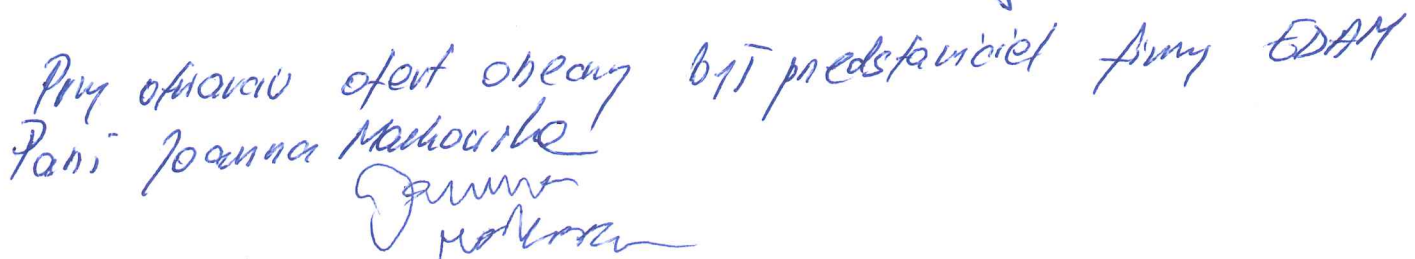 Przy otwarciu ofert obecny był przedstawiciel firmy EDAM
Pani Joanna Markowska
Joanna